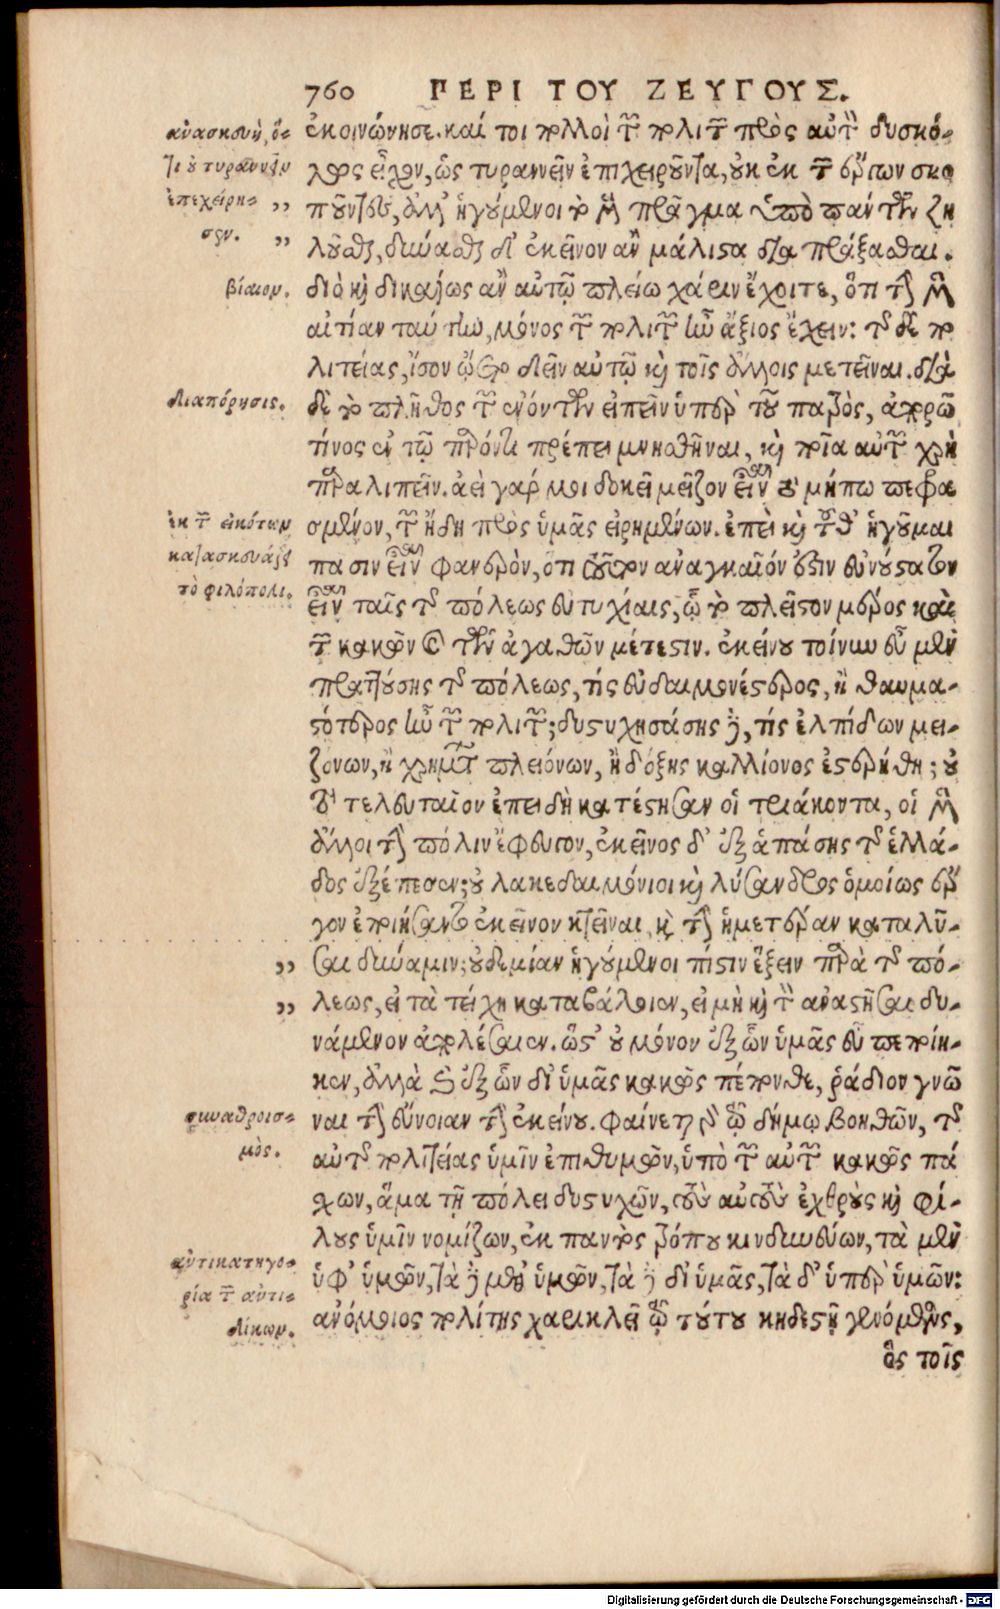 760 ΠΕΡΙ ΤΟΥ ΖΕΥΓΟΥΣ.
ἐκοινώνησε. καί τοι πολλοὶ τῶν πολιτῶν πρὸς αὐτὸν δυσκό-
λως εἶχον, ὡς τυραννεῖν ἐπιχειροῦντα, οὐκ ἐκ τῶν ἔργων σκο
ποῦντες, ἀλλ' ἡγούμενοι τὸ μὲν πρᾶγμα ὑπὸ πάντων ζη
λοῦσθαι, δύνασθαι δ' ἐκεῖνον ἂν μάλιστα διαπράξασθαι.
διὸ καὶ δικαίως ἂν αὐτῷ πλείω χάριν ἔχοιτε, ὅτι τὴν μὲν
αἰτίαν ταύτην, μόνος τῶν πολιτῶν ἄξιος ἦν ἔχειν: τῆς δὲ πο
λιτείας, ἴσον ᾤετο δεῖν αὐτῷ καὶ τοῖς ἄλλοις μετεῖναι. διὰ
δὲ τὸ πλῆθος τῶν ἐνόντων εἰπεῖν ὑπὲρ τοῦ πατρὸς, ἀπορῶ
τίνος ἐν τῷ παρόντι πρέπει μνησθῆναι, καὶ ποῖα αὐτῶν χρὴ
παραλιπεῖν. ἀεὶ γάρ μοι δοκεῖ μεῖζον εἶναι τὸ μήπω πεφα
σμένον, τῶν ἤδη πρὸς ὑμᾶς εἰρημένων. ἐπεὶ καὶ τοῦθ' ἡγοῦμαι
πᾶσιν εἶναι φανερὸν, ὅτι τοῦτον ἀναγκαῖόν ἐστιν εὐνούστατον
εἶναι ταῖς τῆς πόλεως εὐτυχίαις, ᾧ τὸ πλεῖστον μέρος καὶ
τῶν κακῶν καὶ τῶν ἀγαθῶν μέτεστιν. ἐκείνου τοίνυν εὖ μὲν
πραττούσης τῆς πόλεως, τίς εὐδαιμονέστερος, ἢ θαυμα-
στότερος ἦν τῶν πολιτῶν; δυστυχησάσης δὲ, τίς ἐλπίδων μει-
ζόνων, ἢ χρημάτων πλειόνων, ἢ δόξης καλλίονος ἐστερήθη; οὐ
τὸ τελευταῖον ἐπειδὴ κατέστησαν οἱ τριάκοντα, οἱ μὲν
ἄλλοι τὴν πόλιν ἔφευγον, ἐκεῖνος δ' ἐξ ἁπάσης τῆς ἑλλά-
δος ἐξέπεσεν; οὐ λακεδαιμόνιοι καὶ λύσανδρος ὁμοίως ἔρ
γον ἐποιήσαντο ἐκεῖνον κτεῖναι, καὶ τὴν ἡμετέραν καταλῦ-
σαι δύναμιν; οὐδεμίαν ἡγούμενοι πίστιν ἕξειν παρὰ τῆς πό-
λεως, εἰ τὰ τείχη καταβάλοιεν, εἰ μὴ καὶ τὸν ἀναστῆσαι δυ-
νάμενον ἀπολέσαιεν. ὥστ' οὐ μόνον ἐξ ὧν ὑμᾶς εὖ πεποίη-
κεν, ἀλλὰ καὶ ἐξ ὧν δι' ὑμᾶς κακῶς πέπονθε, ῥάδιον γνῶ
ναι τὴν εὔνοιαν τὴν ἐκείνου. φαίνεται γὰρ τῷ δήμῳ βοηθῶν, τῆς
αὐτῆς πολιτείας ὑμῖν ἐπιθυμῶν, ὑπὸ τῶν αὐτῶν κακῶς πά
σχων, ἅμα τῇ πόλει δυστυχῶν, τοὺς αὐτοὺς ἐχθροὺς καὶ φί-
λους ὑμῖν νομίζων, ἐκ παντὸς τρόπου κινδυνεύων, τὰ μὲν
ὑφ' ὑμῶν, τὰ δὲ μεθ' ὑμῶν, τὰ δὲ δι' ὑμᾶς, τὰ δ' ὑπὲρ ὑμῶν:
ἀνόμοιος πολίτης χαρικλεῖ τῷ τούτου κηδεστῇ γενόμενος,
ὃς τοῖς
ἀνασκευὴ, ὅ-
τι οὐ τυραννεῖν
ἐπεχείρη- ,,
σεν. ,,
βίαιον.
διαπόρησις.
ἐκ τῶν εἰκότων
κατασκευάζει
τὸ φιλόπολι.
,,
,,
συναθροισ-
μὸς.
ἀντικατηγο-
ρία τῶν ἀντι-
δίκων.
Digitalisierung gefördert durch die Deutsche Forschungsgemeinschaft - DFG